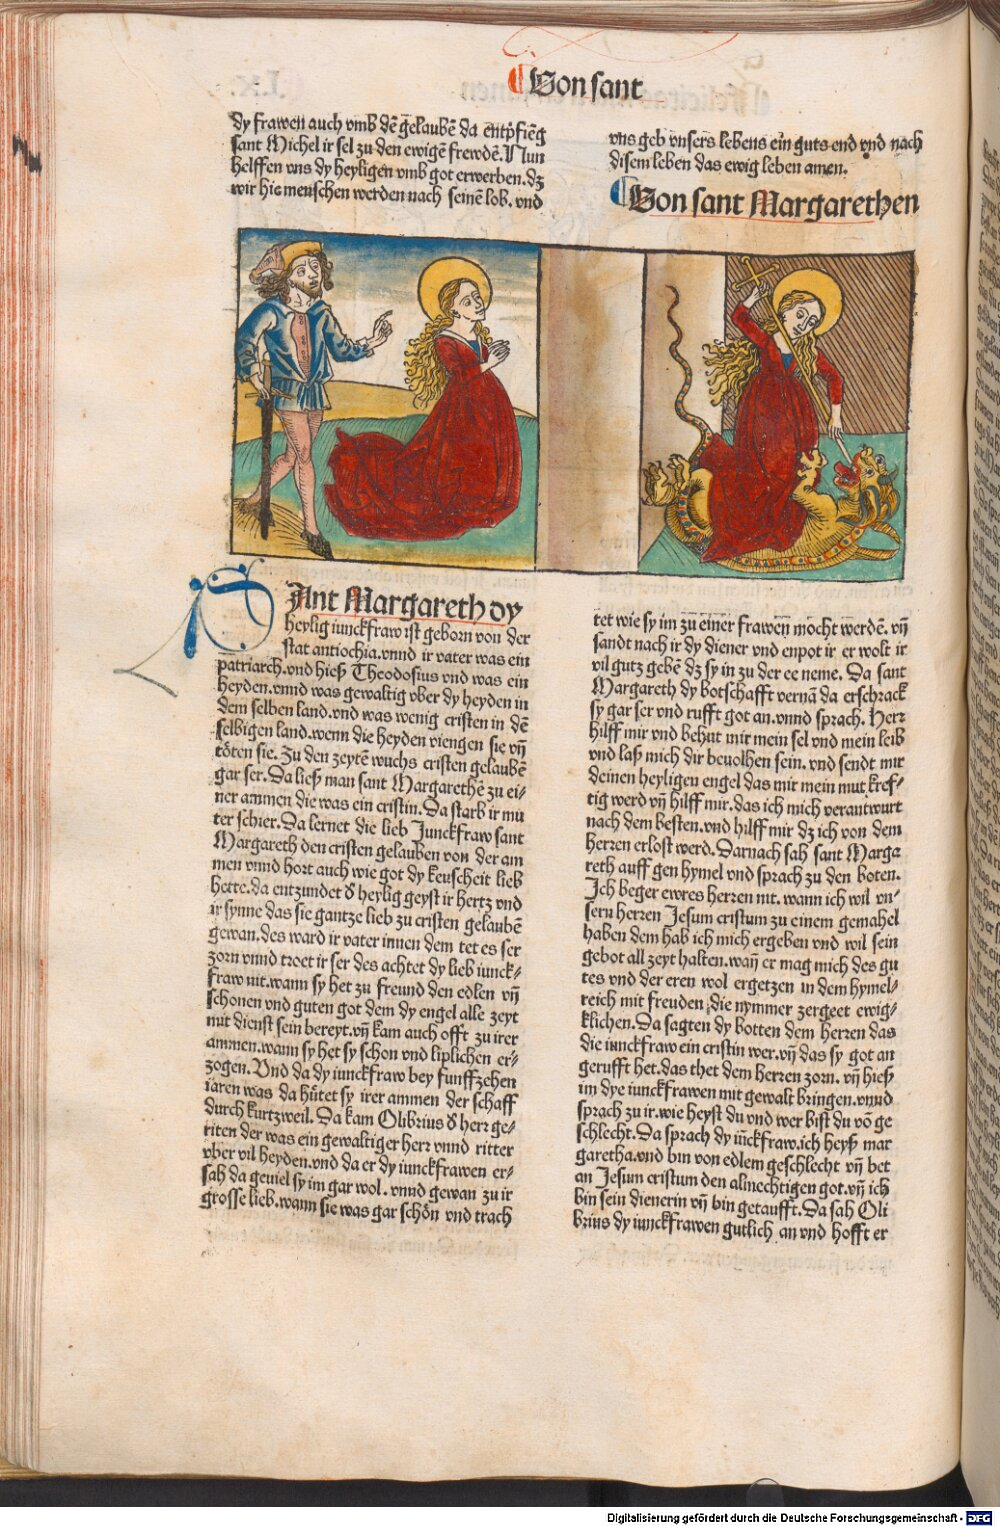 Von sant
dy frawen auch vmb dē gelaubē da entpfieng
sant Michel ir sel zu den ewigē frewdē. Nun
helffen vns dy heyligen vmb got erwerben. dz
wir hie menschen werden nach seinē lob. vnd
vns geb vnsers lebens ein guts end vnd nach
disem leben das ewig leben amen.
Von sant Margarethen
SAnt Margareth dy
heylig iunckfraw ist geborn von der
stat antiochia. vnnd ir vater was ein
patriarch. vnd hieß Theodosius vnd was ein
heyden. vnnd was gewaltig vber dy heyden in
dem selben land. vnd was wenig cristen in dē
selbigen land. wenn die heyden viengen sie vn̄
töten sie. Zu den zeytē wuchs cristen gelaubē
gar ser. Da ließ man sant Margarethē zu ei-
ner ammen die was ein cristin. Da starb ir mu
ter schier. Da lernet die lieb Junckfraw sant
Margareth den cristen gelauben von der am
men vnnd hort auch wie got dy keuscheit lieb
hette. da entzundet d heylig geyst ir hertz vnd
ir synne das sie gantze lieb zu cristen gelaubē
gewan. des ward ir vater innen dem tet es ser
zorn vnnd troet ir ser des achtet dy lieb iunck-
fraw nit. wann sy het zu freund den edlen vn̄
schonen vnd guten got dem dy engel alle zeyt
mit dienst sein bereyt. vn̄ kam auch offt zu irer
ammen. wann sy het sy schon vnd liplichen er-
zogen. Vnd da dy iunckfraw bey funffzehen
iaren was da hütet sy irer ammen der schaff
durch kurtzweil. Da kam Olibrius d herr ge-
riten der was ein gewaltiger herr vnnd ritter
vber vil heyden. vnd da er dy iunckfrawen er-
sah da geuiel sy im gar wol. vnnd gewan zu ir
grosse lieb. wann sie was gar schön vnd trach
tet wie sy im zu einer frawen möcht werdē. vn̄
sandt nach ir dy diener vnd enpot ir er wolt ir
vil gutz gebē dz sy in zu der ee neme. Da sant
Margareth dy botschafft vernā da erschrack
sy gar ser vnd rufft got an. vnnd sprach. Herr
hilff mir vnd behut mir mein sel vnd mein leib
vnd laß mich dir beuolhen sein. vnd sendt mir
deinen heyligen engel das mir mein mut kref-
tig werd vn̄ hilff mir. das ich mich verantwurt
nach dem besten. vnd hilff mir dz ich von dem
herren erlost werd. Darnach sah sant Marga
reth auff gen hymel vnd sprach zu den boten.
Ich beger ewres herren nit. wann ich wil vn-
sern herren Jesum cristum zu einem gemahel
haben dem hab ich mich ergeben vnd wil sein
gebot all zeyt halten. wan̄ er mag mich des gu
tes vnd der eren wol ergetzen in dem hymel-
reich mit freuden die nymmer zergeet ewig-
klichen. Da sagten dy botten dem herren das
die iunckfraw ein cristin wer. vn̄ das sy got an
gerufft het. das thet dem herren zorn. vn̄ hieß
im dye iunckfrawen mit gewalt bringen. vnnd
sprach zu ir. wie heyst du vnd wer bist du vō ge
schlecht. Da sprach dy iūckfraw. ich heyß mar
garetha. vnd bin von edlem geschlecht vn̄ bet
an Jesum cristum den almechtigen got. vn̄ ich
bin sein dienerin vn̄ bin getaufft. Da sah Oli
brius dy iunckfrawen gutlich an vnd hofft er
Digitalisierung gefördert durch die Deutsche Forschungsgemeinschaft - DFG